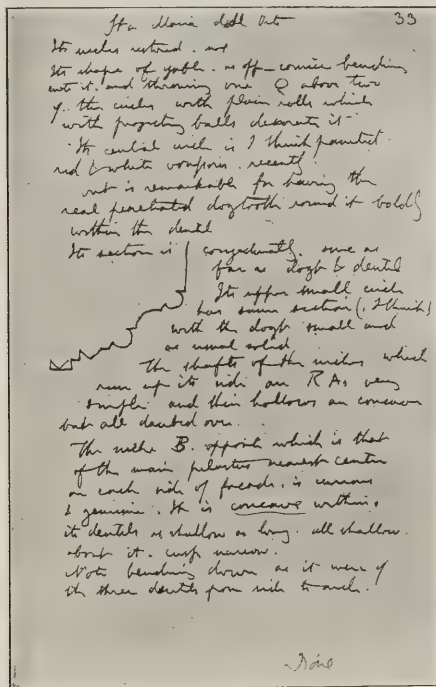 Sta Maria dell Orto 33
Its niches restored. 
Its shape of gable. as off cornice bending
into it. and throwing one Q above two
of the circles with plain rolls which
with projecting balls decorate it
Its central circle is I think painted
red & white voussoirs. recently.
but is remarkable for having the
real penetrated dogtooth round it boldly
within the dentil
Its section is conjecturally. same as
far as dogt & dentil
Its upper small circle
has same section (I think)
with the dogt small and
as usual solid
The shafts of the niches which
run up its side are RAs very
simple and their hollows are concave
but all daubed over.
The niche B. opposite which is that
of the main pilaster nearest center
on each side of facade, is curious
& genuine. It is concave within.
its dentils as shallow as long. all shallow.
about it. cusp narrow.
Note bending down as it were of
the three dentils from side to arch.
Done